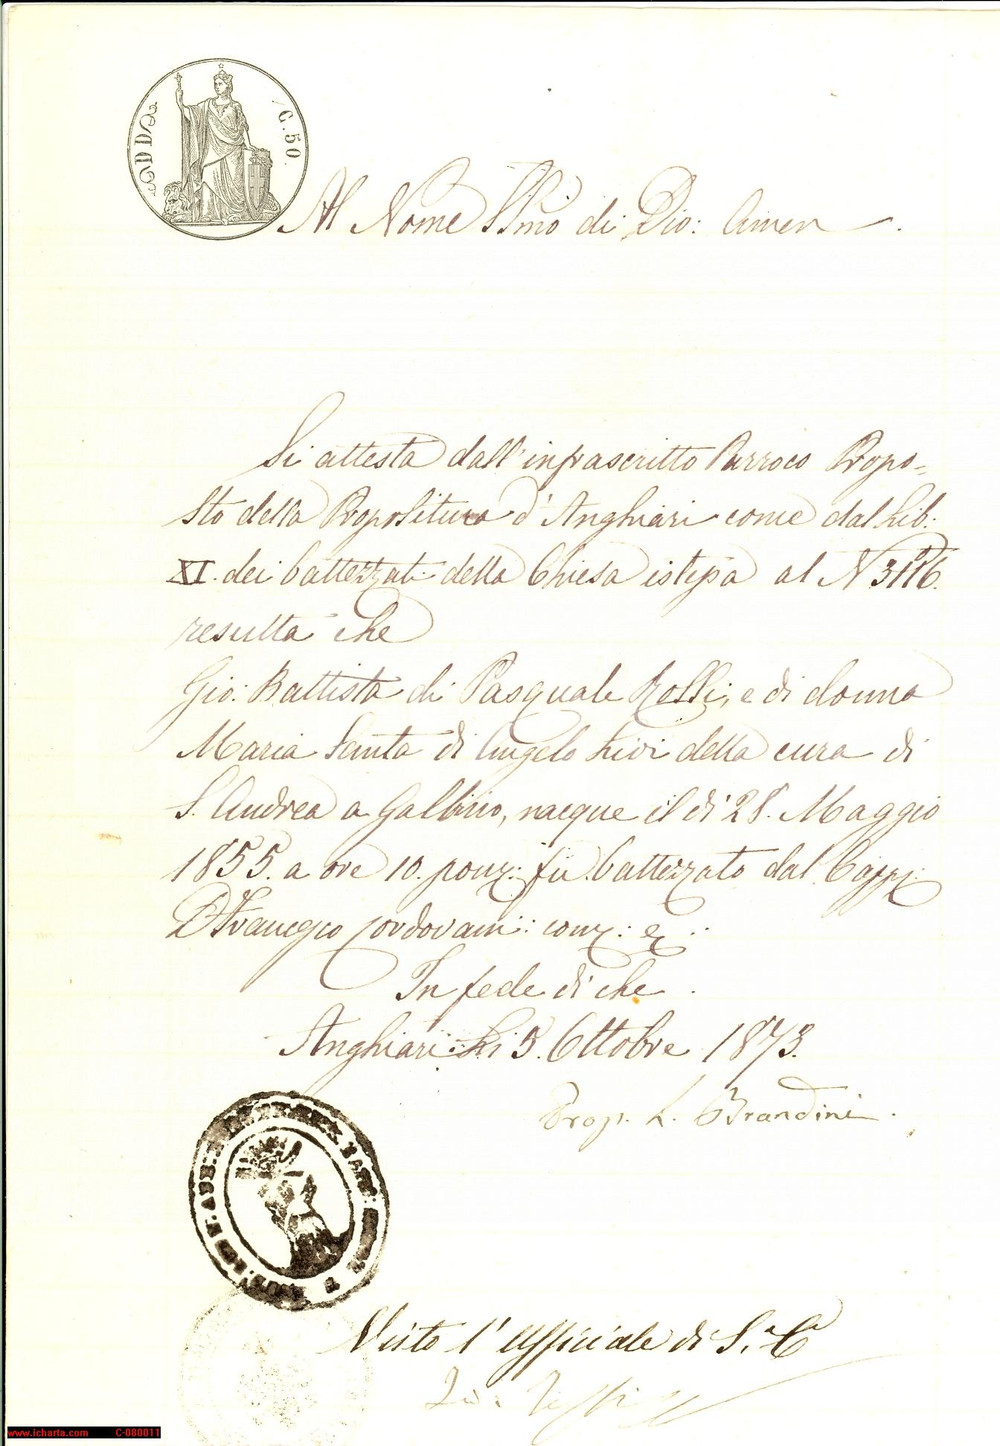 C. 50.
Al Nome SSmo di Dio: Amen.
Si attesta dall'infrascritto Parroco Propo=
sto della Propositura d'Anghiari come dal Lib:
XI. dei battezzati della Chiesa istessa al N
resulta che
Gio: Battista di Pasquale Rolli, e di donna
Maria Santa di Angelo Livi della cura di
S. Andrea a Galbino, nacque il dì 28. Maggio
1855. a ore 10. pom: fù battezzato dal Capp:
D. Francesco Cordovani:
In fede di che.
Anghiari Li 5. Ottobre 1873.
Prop. L. Brandini.
Visto l'Uffiziale di S. C.
www.icharta.com C-080011